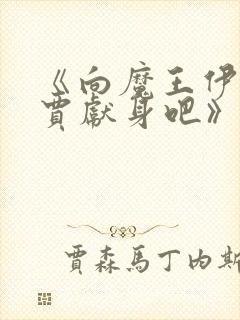 《向魔王伊
賈獻身吧》
賈森馬丁内斯